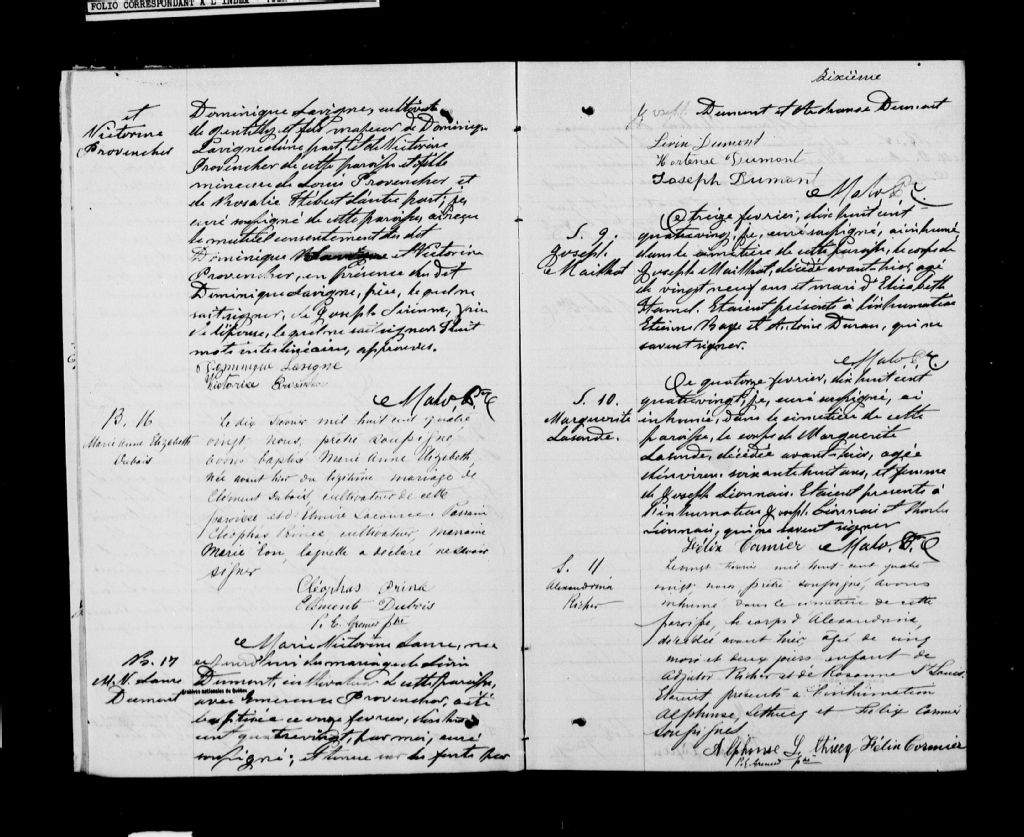 FOLIO CORRESPONDANT A L'INDEX
et
Victorine
Provencher
Dominique Lavigne, cultivateur
de Gentilly, et fils majeur de Dominique
Lavigne d'une part, et de Victorine
Provencher de cette paroisse et fille
mineure de Louis Provencher et
de Rosalie Hébert d'autre part; je,
curé soussigné de cette paroisse, ai reçu
le mutuel consentement du dit
Dominique et Victorine
Provencher, en présence du dit
Dominique Lavigne, père, lequel ne
sait signer, de Joseph
de l'épouse, lequel ne sait signer. Huit
mots interlinéaires, approuvés.
Dominique Lavigne
Victorine Provencher
Malo Ptr
B. 16
Marie Anne Elizabeth
Dubois
Le dix Février mil huit cent quatre
vingt nous, prêtre soussigné
avons baptisé Marie Anne Elizabeth
née avant hier du légitime mariage de
Clément Dubois, cultivateur de cette
paroisse et d'Elmire Lacource. Parrain
Cléophas Prince cultivateur, marraine
Marie laquelle a déclaré ne savoir
signer
Cléophas Prince
Clément Dubois
P. E. Grenier ptre
B. 17
M. V. Laure
Dumont
Marie Victorine Laure, née
du mariage de Livin
Dumont, cultivateur de cette paroisse,
avec Emérence Provencher, a été
baptisée ce onze février, dix huit
cent quatrevingt, par moi, curé
soussigné; et tenue sur les fonts par
Archives nationales du Québec
Sixième
Joseph Dumont et Dumont
Livin Dumont
Hortense Dumont
Joseph Dumont
Malo Ptr
S. 9.
Joseph
Mailhot
Ce treize fevrier, dix huit cent
quatrevingt, je, curé soussigné, ai inhumé,
dans le cimetière de cette paroisse, le corps de
Joseph Mailhot, décédé avant-hier, agé
de vingt neuf ans et mari d'Elisabeth
Hamel. Etaient présents à l'inhumation
Etienne et Antoine Durand, qui ne
savent signer.
Malo Ptr
S. 10.
Marguerite
Lalonde.
Ce quatorze fevrier, dix huit cent
quatrevingt, je, curé soussigné, ai
inhumé, dans le cimetière de cette
paroisse, le corps de Marguerite
Lalonde, décédée avant-hier, agée
d'environ soixante huit ans, et femme
de Joseph Lionnais. Etaient présents à
l'inhumation Joseph Lionnais et Charles
Lionnais, qui ne savent signer
Félix Cormier Malo, Ptr
S. 11
Alexandrina
Richer
Le vingt Février mil huit cent quatre
vingt, nous prêtre soussigné, avons
inhumé dans le cimetière de cette
paroisse, le corps d'Alexandrina,
décédée avant hier, agé de cinq
mois et deux jours enfant de
Adjutor Richer et de Rosanne St Louis.
Etaient présents à l'inhumation
Alphonse, Lethiecq et Félix Cormier
Soussignés
Alphonse L. thiecq Félix Cormier
P. E. Grenier ptre